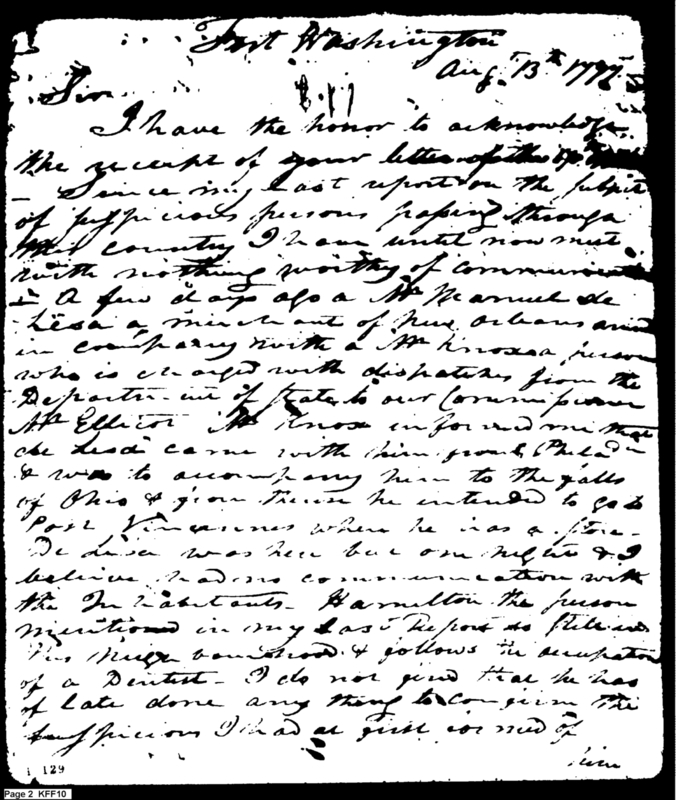 Fort Washington
Aug.t 13th 1797
Sir
I have the honor to acknowledge
the receipt of your letter of the
Since my last report on the subject
of suspicious persons passing through
this country I have until now met
with nothing worthy of
A few days ago a Mr Manuel de
Lesa a merchant of New Orleans
in company with a Mr Knox a person
who is charged with dispatches from the
Department of State to our Commissioner
Mr Ellicot Mr Knox informed me that
de Lesa came with him from Philad
& was to accompany him to the falls
of Ohio & from thence he intended to go to
Post Vincennes where he has a store
De Lesa was here but one night & I
believe had no communication with
the Inhabitants - Hamilton the person
mentioned in my last Report is still in
this neighbourhood & follows the occupation
of a Dentist - I do not find that he has
of late done any thing to confirm the
suspicious I had at first formed of
him
129
Page 2 KFF10